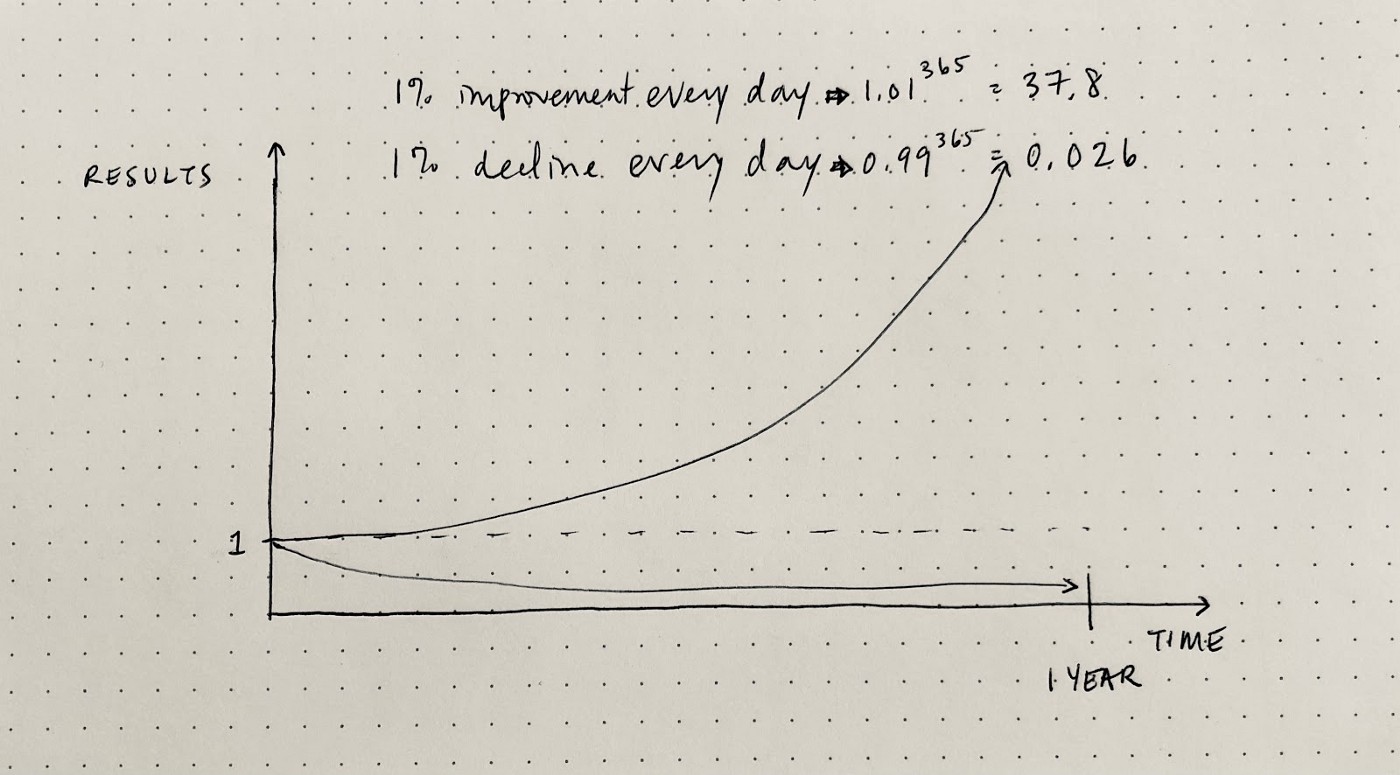 1% improvement every day ⇒ 1.01^365 = 37.8
1% decline every day ⇒ 0.99^365 = 0.026
RESULTS
1
TIME
1 YEAR